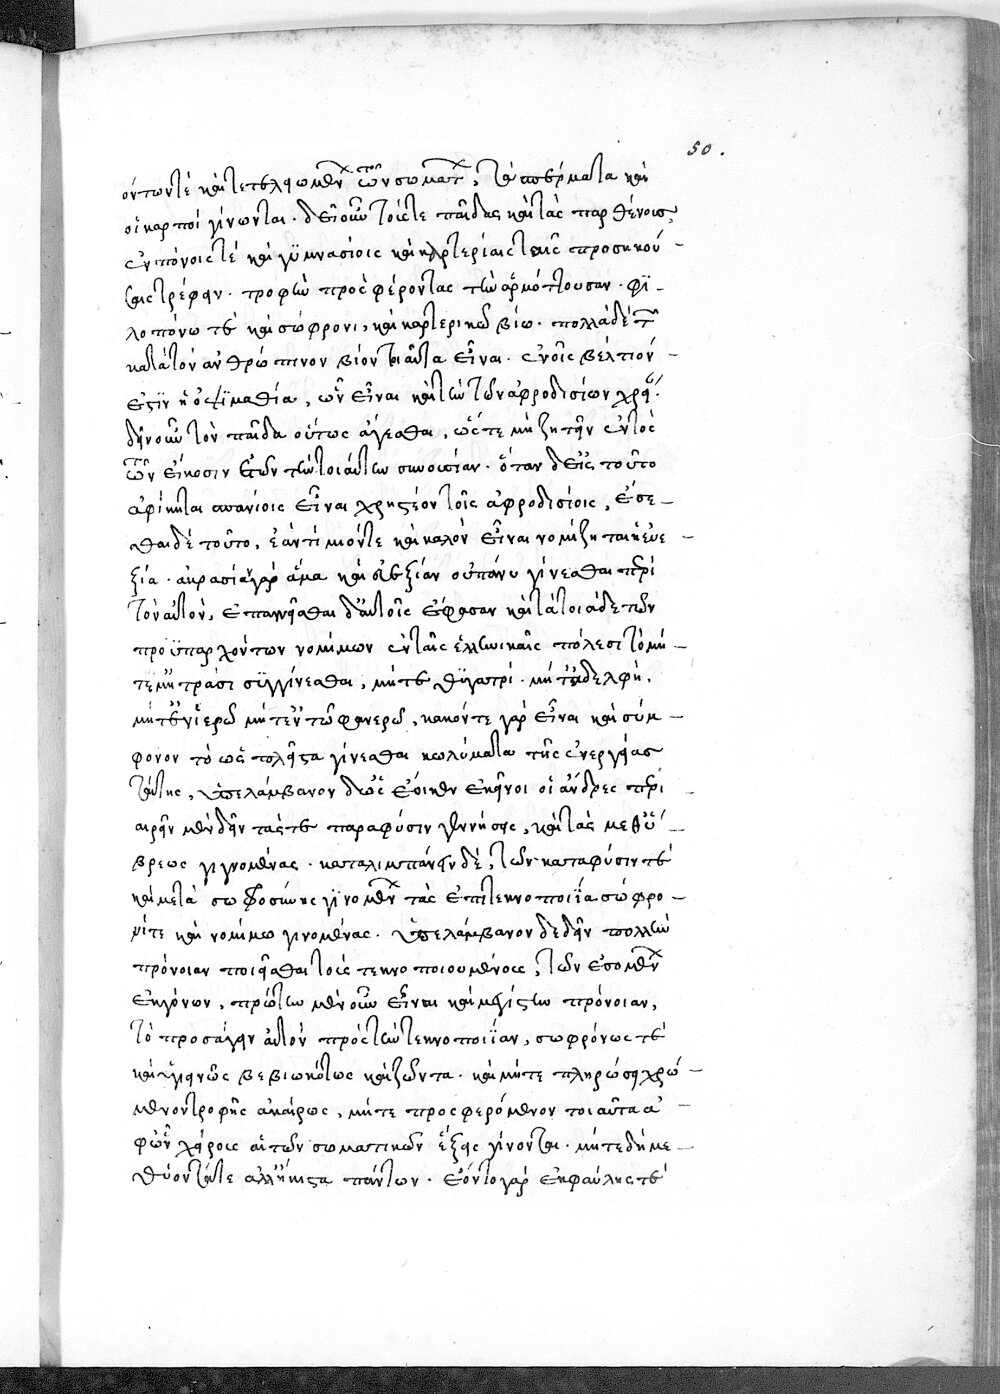 50.
όντων τὲ καὶ τετελειωμένων τῶν σωμάτων, τὰ σπέρματα καὶ
οἱ καρποὶ γίνωνται. δεῖν οὖν τούς τε παῖδας καὶ τὰς παρθένους
ἐν πόνοις τὲ καὶ γυμνασίοις καὶ καρτερίαις ταῖς προσηκού-
σαις τρέφειν. τροφὴν προσφέροντας τὴν ἁρμόττουσαν. φι-
λοπόνω τε καὶ σώφρονι, καὶ καρτερικῶ βίω. πολλὰ δὲ τῶν
κατὰ τὸν ἀνθρώπινον βίον τοιαῦτα εἶναι. ἐν οἷς βέλτιόν
ἐστιν ἡ ὀψιμαθία, ὧν εἶναι καὶ τὴν τῶν ἀφροδισίων χρεί.
δεῖν οὖν τὸν παῖδα οὕτως ἄγεσθαι, ὥστε μὴ ζητεῖν ἐντὸς
τῶν εἴκοσιν ἐτῶν τὴν τοιαύτην συνουσίαν. ὅταν δὲ εἰς τοῦτο
ἀφίκηται σπανίοις εἶναι χρηστέον τοῖς ἀφροδισίοις, ἔσε-
σθαι δὲ τοῦτο, ἐὰν τίμιόν τε καὶ καλὸν εἶναι νομίζηται ἡ εὐε-
ξία. ἀκρασία γὰρ ἅμα καὶ εὐεξίαν οὐ πάνυ γίνεσθαι περὶ
τὸν αὐτὸν, ἐπαινεῖσθαι δ' αὐτοῖς ἔφασαν καὶ τὰ τοιάδε τῶν
προϋπαρχόντων νομίμων ἐν ταῖς ἑλληνικαῖς πόλεσι τὸ μή-
τε μητράσι συγγίνεσθαι, μήτε θυγατρί. μήτ' ἀδελφῆ.
μήτ' ἐν ἱερῶ μήτ' ἐν τῶ φανερῶ, καλόν τε γὰρ εἶναι καὶ σύμ-
φορον τὸ ὡς πλεῖστα γίνεσθαι κωλύματα τῆς ἐνεργείας
ταύτης, ὑπελάμβανον δ' ὡς ἔοικεν ἐκεῖνοι οἱ ἄνδρες περι-
αιρεῖν μὲν δεῖν τάς τε παρὰ φύσιν γεννήσεις, καὶ τὰς μεθ' ὕ-
βρεως γιγνομένας. καταλιμπάνειν δὲ, τῶν κατὰ φύσιν τὲ
καὶ μετὰ σωφροσύνης γινομένων τὰς ἐπὶ τεκνοποιΐα σώφρο-
νί τε καὶ νομίμω γινομένας. ὑπελάμβανον δὲ δεῖν πολλὴν
πρόνοιαν ποιεῖσθαι τοὺς τεκνοποιουμένους, τῶν ἐσομένων
ἐκγόνων, πρώτην μὲν οὖν εἶναι καὶ μεγίστην πρόνοιαν,
τὸ προσάγειν αὑτὸν πρὸς τὴν τεκνοποιΐαν, σωφρόνως τὲ
καὶ ὑγιεινῶς βεβιωκότως καὶ ζῶντα. καὶ μήτε πληρώσει χρώ-
μενον τροφῆς ἀκαίρως, μήτε προσφερόμενον τοιαῦτα ἀ-
φ' ὧν χείρους αἱ τῶν σωματικῶν ἕξεις γίνονται. μήτε δὴ με-
θύοντά τε ἀλλ' ἥκιστα πάντων. ἐόντο γὰρ ἐκ φαύλης τὲ